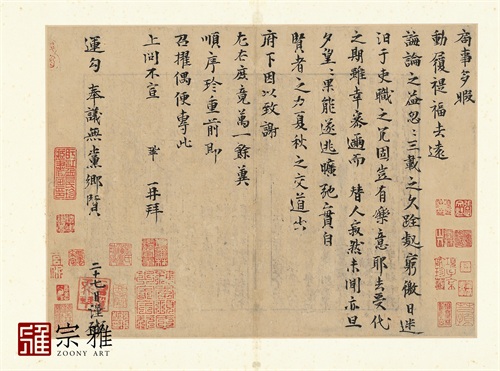 局事多暇
動履禔福去遠
誨論之益忽〻三載之久跧處窮徼日迷
汩于吏職之冗固豈有樂意耶去受代
之期雖幸密邇而替人寂然未聞亦旦
夕望〻果能遂逃曠弛之責自
賢者之力夏秋之交道出
府下因以致謝
左右庶竟萬一餘冀
順序珍重前即
召擢偶便專此
上問不宣 鞏 再拜
運勾奉議無黨鄉賢
二十七日謹啓
宗雅
ZOONY ART